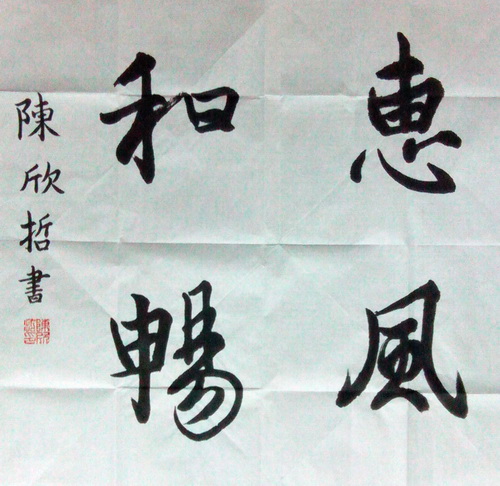 惠風
和暢
陳欣哲書